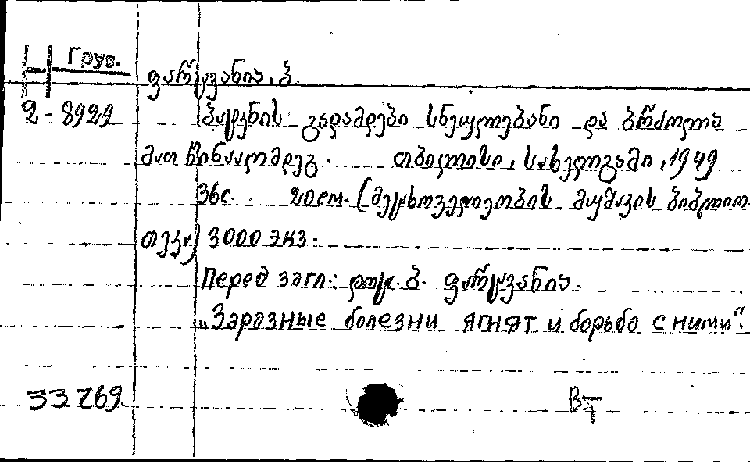 Груз.
ფარქვანია, ბ.
2-8929
ბატკნის გადამდები სნეულებანი და ბრძოლა
მათ წინააღმდეგ. თბილისი, სახელგამი, 1949
36с. 20см. (მეცხოველეობის მუშაკის ბიბლიო
თეკა) 3000 экз.
Перед загл.: დოც. ბ. ფარქვანია.
„Заразные болезни ягнят и борьба с ними".
33269